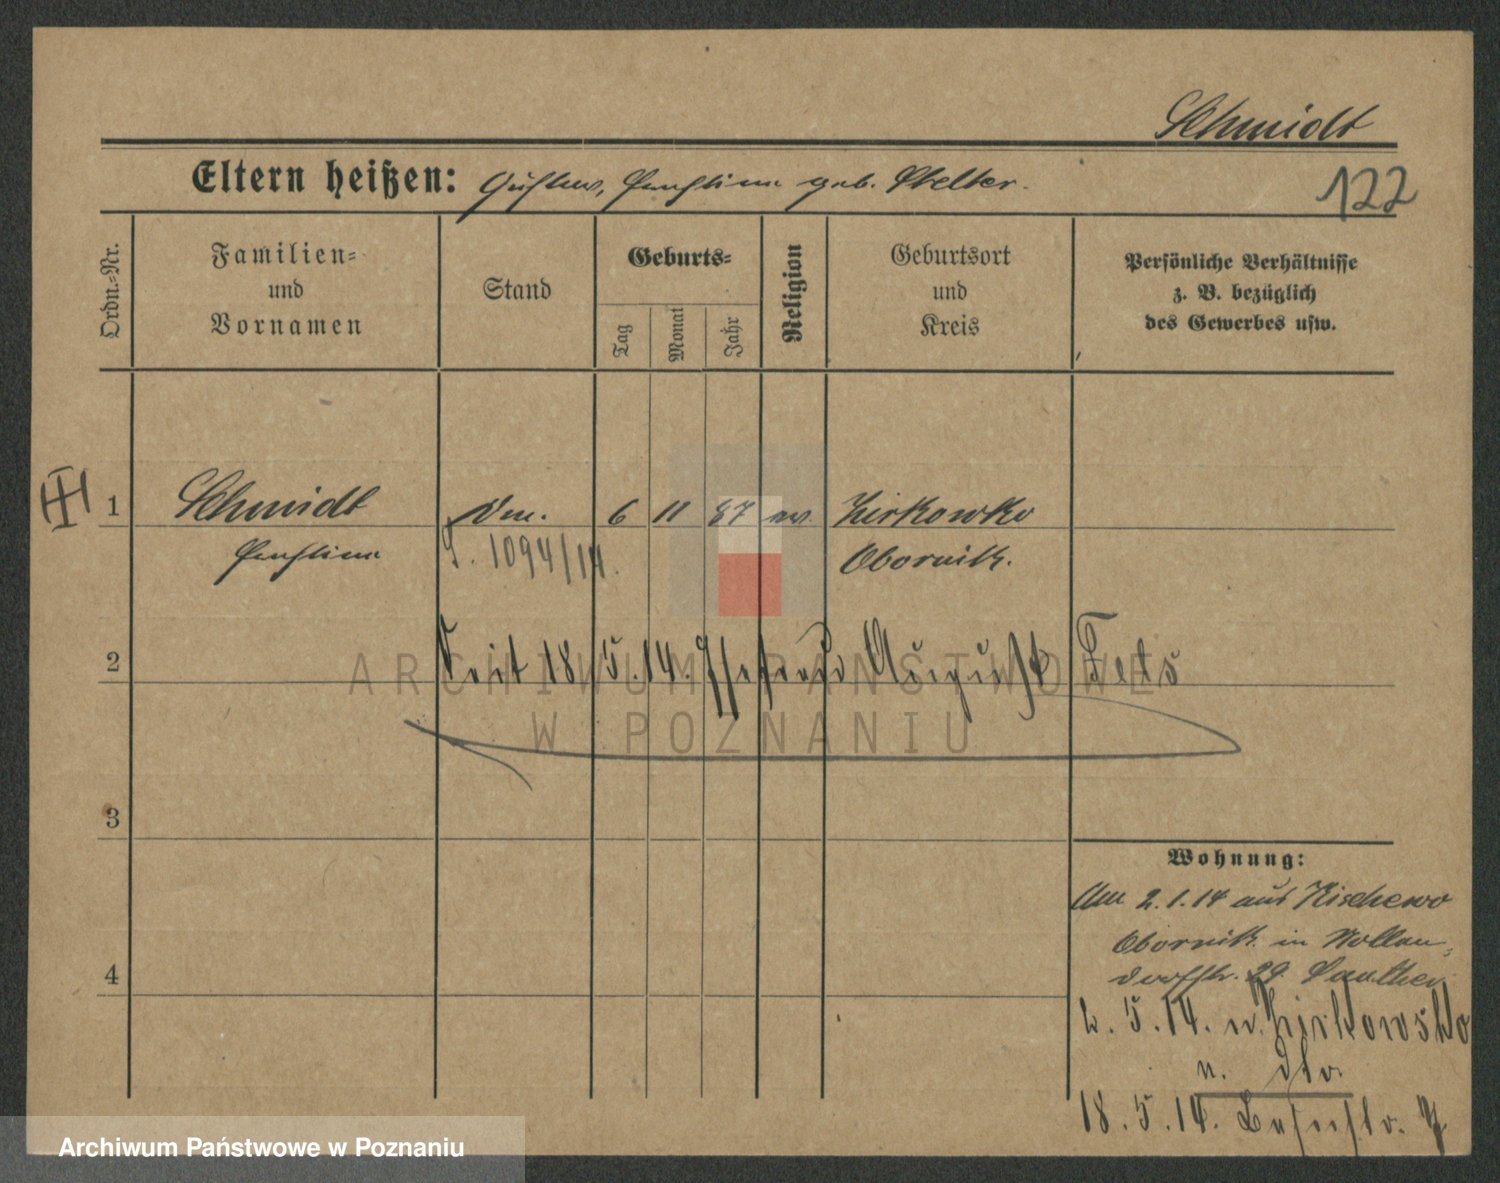 Schmidt
Eltern heißen: Gustav, Pauline geb. Stelter.
122
Ordn.-Nr.
Familien- und Vornamen
Stand
Geburts-
Tag
Monat
Jahr
Religion
Geburtsort und Kreis
Persönliche Verhältnisse z. B. bezüglich des Gewerbes usw.
1 Schmidt 6 11 87 ev. Zirkowko
Pauline 1094/14. Obornik.
2 Seit 18.5.14. Ehefrau August Fels
ARCHIWUM PAŃSTWOWE
W POZNANIU
3
Wohnung:
Am 2.1.14 aus Kischewo
Obornik in Wollen-
4 dorffstr. 29
2.5.14. n. Zirkowsko
n. dto.
18.5.14.
Archiwum Państwowe w Poznaniu